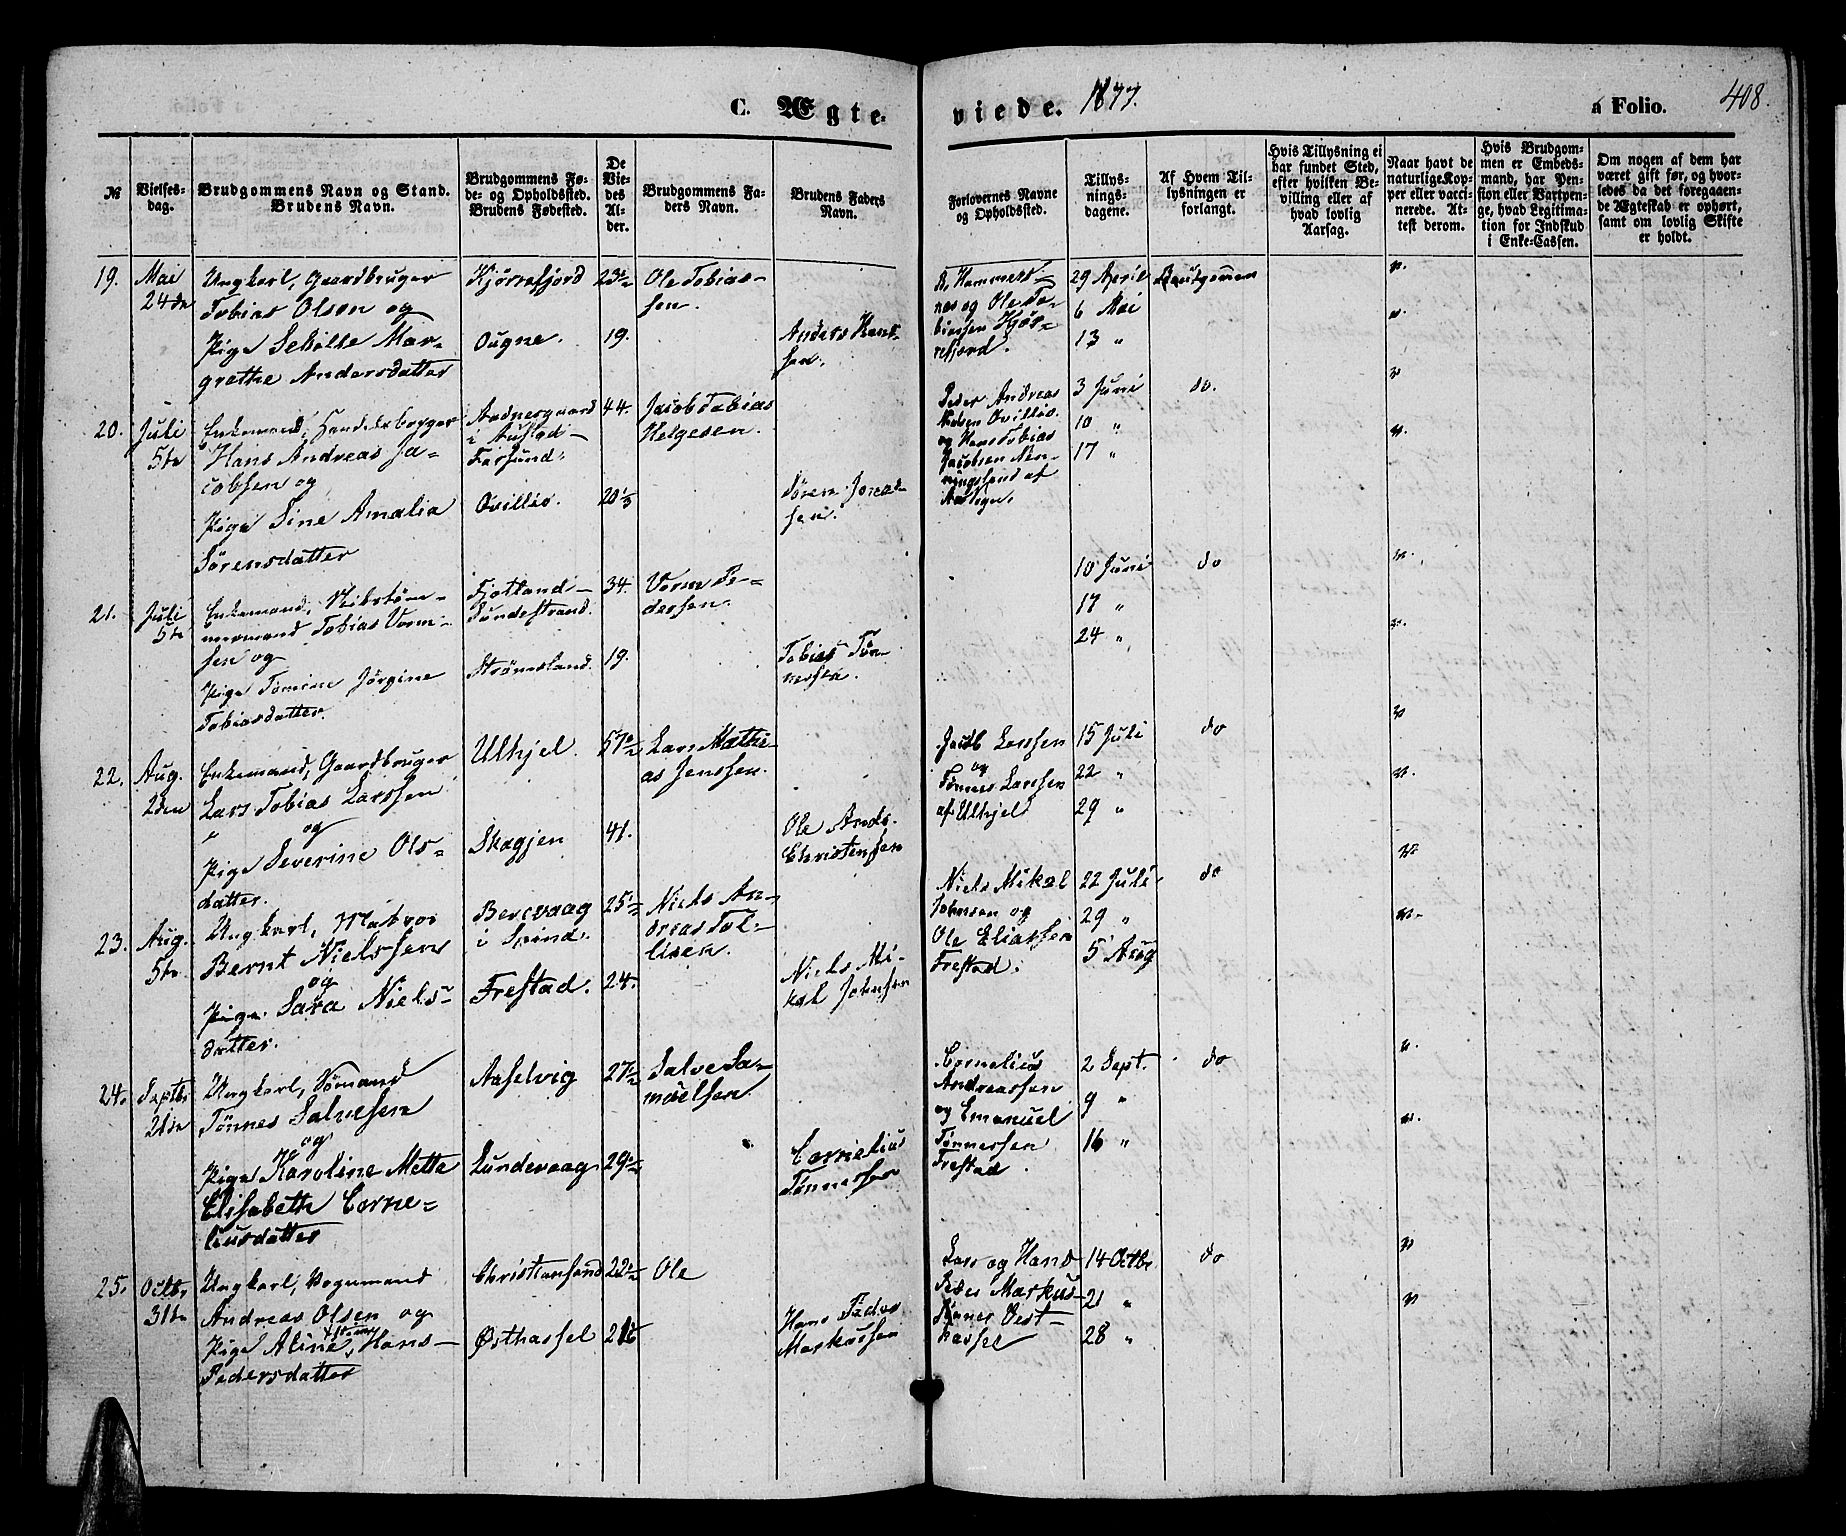 C. Ægteviede. 1877. a Folio. 408.
№
Vielses-
dag.
Brudgommens Navn og Stand.
Brudens Navn.
Brudgommens Fø-
de- og Opholdssted.
Brudens Fødested.
De
Vie-
des
Al-
der.
Brudgommens Fa-
ders Navn.
Brudens Faders
Navn.
Forlovernes Navne
og Opholdssted.
Tillys-
nings-
dagene.
Af Hvem Til-
lysningen er
forlangt.
Hvis Tillysning ei
har fundet Sted,
efter hvilken Be-
villing eller af
hvad lovlig
Aarsag.
Naar havt de
naturlige Kop-
per eller vacci-
nerede. At-
test derom.
Hvis Brudgom-
men er Embeds-
mand, har Pen-
sion eller Vartpen-
ge, hvad Legitima-
tion for Indskud
i Enke-Cassen.
Om nogen af dem har
været gift før, og hvor-
ledes da det foregaaen-
de Ægteskab er ophørt,
samt om lovlig Skifte
er holdt.
19. Mai
24de
Ungkarl, Gaardbruger
Tobias Olsen og
Pige Sehalte Mar-
grethe Andersdatter
Kjørrefjord
Ougne.
23½
19.
Ole Tobias-
sen.
Anders Hans-
sen.
nes og Ole To-
biassen Kjør-
refjord.
29 April
6 Mai
13 "
Brudgommen
20. Juli
5te
Enkemand, Handelsborger
Hans Andreas Ja-
cobsen og
Pige Sine Amalia
Sørensdatter
i Austad -
Farsund.
Ovillie.
44.
20⅓
Jacob Tobias
Helgesen.
Søren Jonas-
sen.
Peder Andreas
Ovillie.
og Hans Tobias
Jacobsen Nen-
ningsland af
3 Juni
10 "
17 "
do.
21. Juli
5te
Enkemand,
Tobias Vorm-
sen og
Pige Tomine Jørgine
Tobiasdatter.
Fjotland -
Sundestrand.
Strømsland.
34.
19.
Vorm Pe-
dersen.
Tobias Tøn-
nessen.
10 Juni
17 "
24 "
do
22. Aug.
2den
Enkemand, Gaardbruger
Lars Tobias Larssen
og
Pige Severine Ols-
datter.
Ulhjel.
Skagjen
57½
41.
Lars Mathi-
as Jenssen.
Ole Ands.
Christenssen
Jacob Larssen
og
Tønnes Larssen
af Ulhjel
15 Juli
22 "
29 "
do
23. Aug.
5te
Ungkarl, Matros
Bernt Nielssen
og
Pige Sara Niels-
datter.
Bervaag
i Spind.
Frestad.
25½
24.
Niels An-
dreas Tol-
lisen.
Niels Mi-
kal Johnsen
Niels Mikal
Johnsen og
Ole Eliassen
Frestad.
22 Juli
29 "
5 Aug
do
24. Septbr
21de
Ungkarl, Sømand
Tønnes Salvesen
og
Pige Karoline Mette
Elisabeth Corne-
liusdatter
Aaselvig
Lundevaag
27½
29½
Salve Sa-
muelsen.
Cornelius
Tønnessen
Cornelius
Andreassen
og Emanuel
Tønnessen
Frestad.
2 Sept.
9 "
16 "
do
25. Octbr
31te
Ungkarl, Vognmand
Andreas Olsen og
Pige Aline Hans-
Pedersdatter
Christiansand
Østhassel
22½
Ole
Hans Peder
Markussen
Lars og Hans
Peder Markus-
sønner Vest-
hassel
14 Octbr
21 "
28 "
do